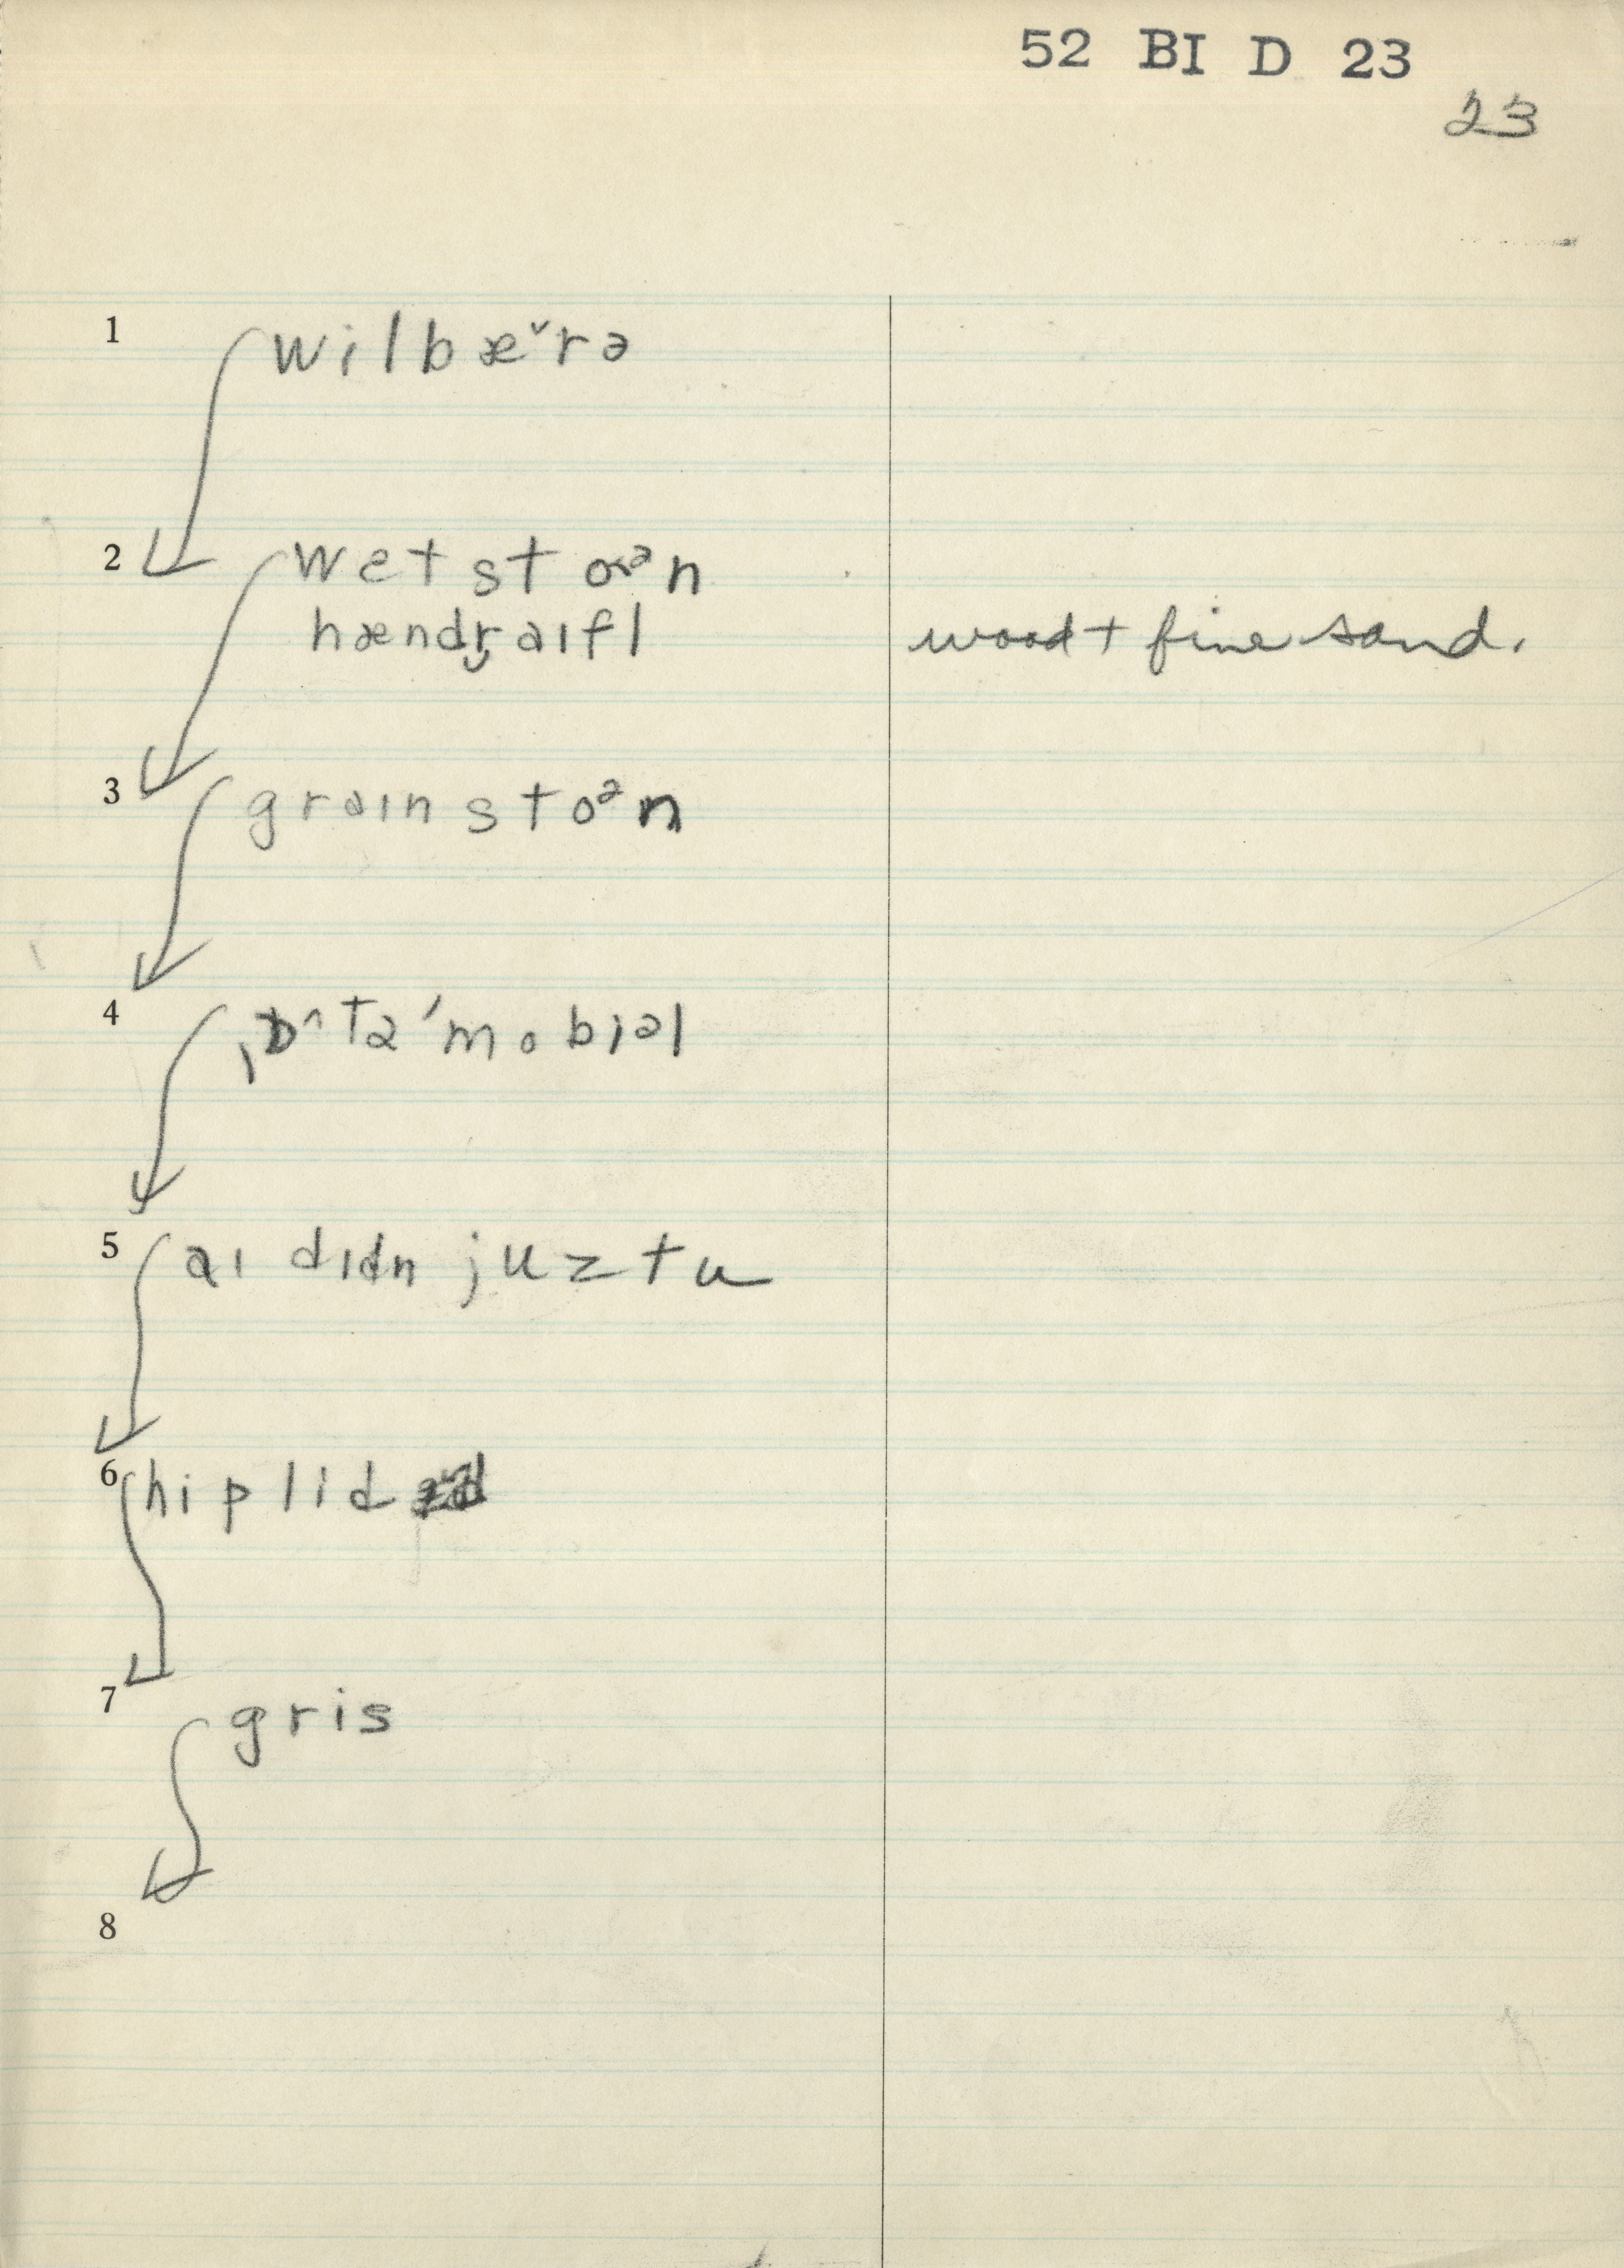 52 BI D 23
23
1 wilbæ˅rə
2 wetstoᵊn
hændr̬aɪfl wood + fine sand.
3 graɪnstoᵊn
4 ˌɒ^tə'mobiəl
5 aɪ dɪdn juztu
6 hiplid
7 gris
8